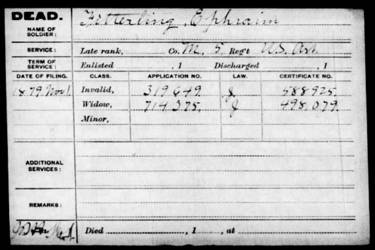 DEAD.
NAME OF SOLDIER: Fetterling, Ephraim
SERVICE: Late rank, Co. M, 5 Reg't U.S. Art
TERM OF SERVICE: Enlisted , 1 Discharged , 1
DATE OF FILING. CLASS. APPLICATION NO. LAW. CERTIFICATE NO.
1879 Nov 1 Invalid, 319649. 588925.
Widow, 714375. 498.079.
Minor,
ADDITIONAL SERVICES:
REMARKS:
Died , 1 , at